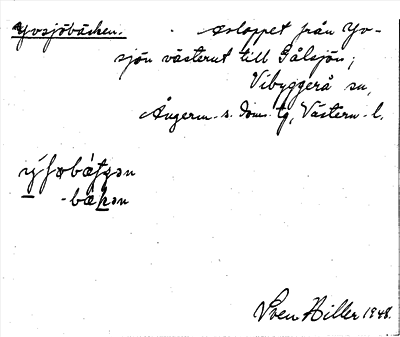 Yvsjöbäcken. . Avloppet från Yv-
sjön västerut till Gålsjön;
Vibyggerå sn,
Ångerm. s. doms. tg, Västern. l.
-bækən
Sven Hiller 1948.